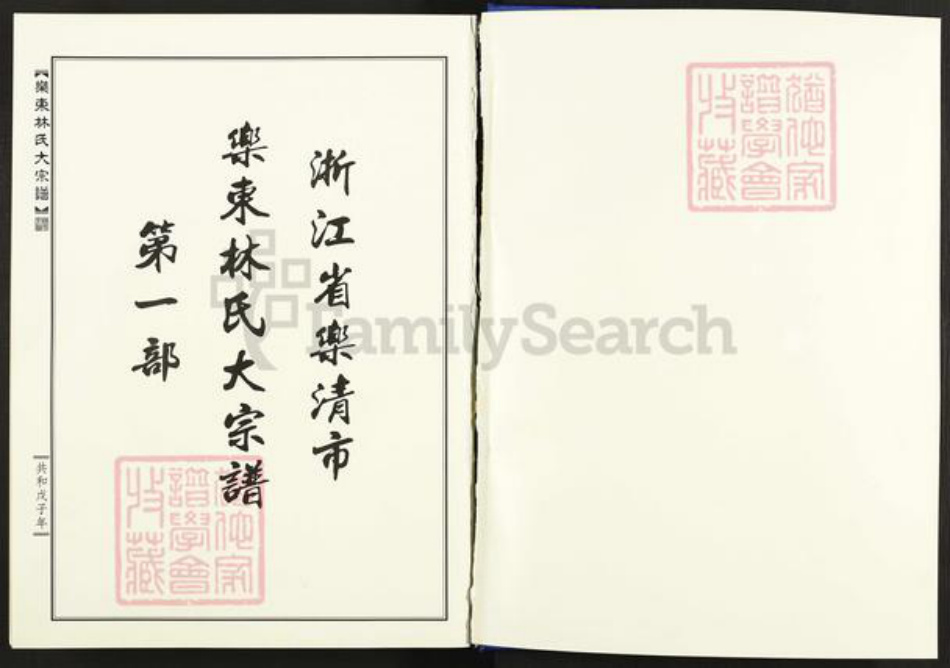 猶他家
譜學會
收藏
浙江省樂清市
樂東林氏大宗譜
第一部
猶他家
譜學會
收藏
【樂東林氏大宗譜】
共和戊子年
FamilySearch